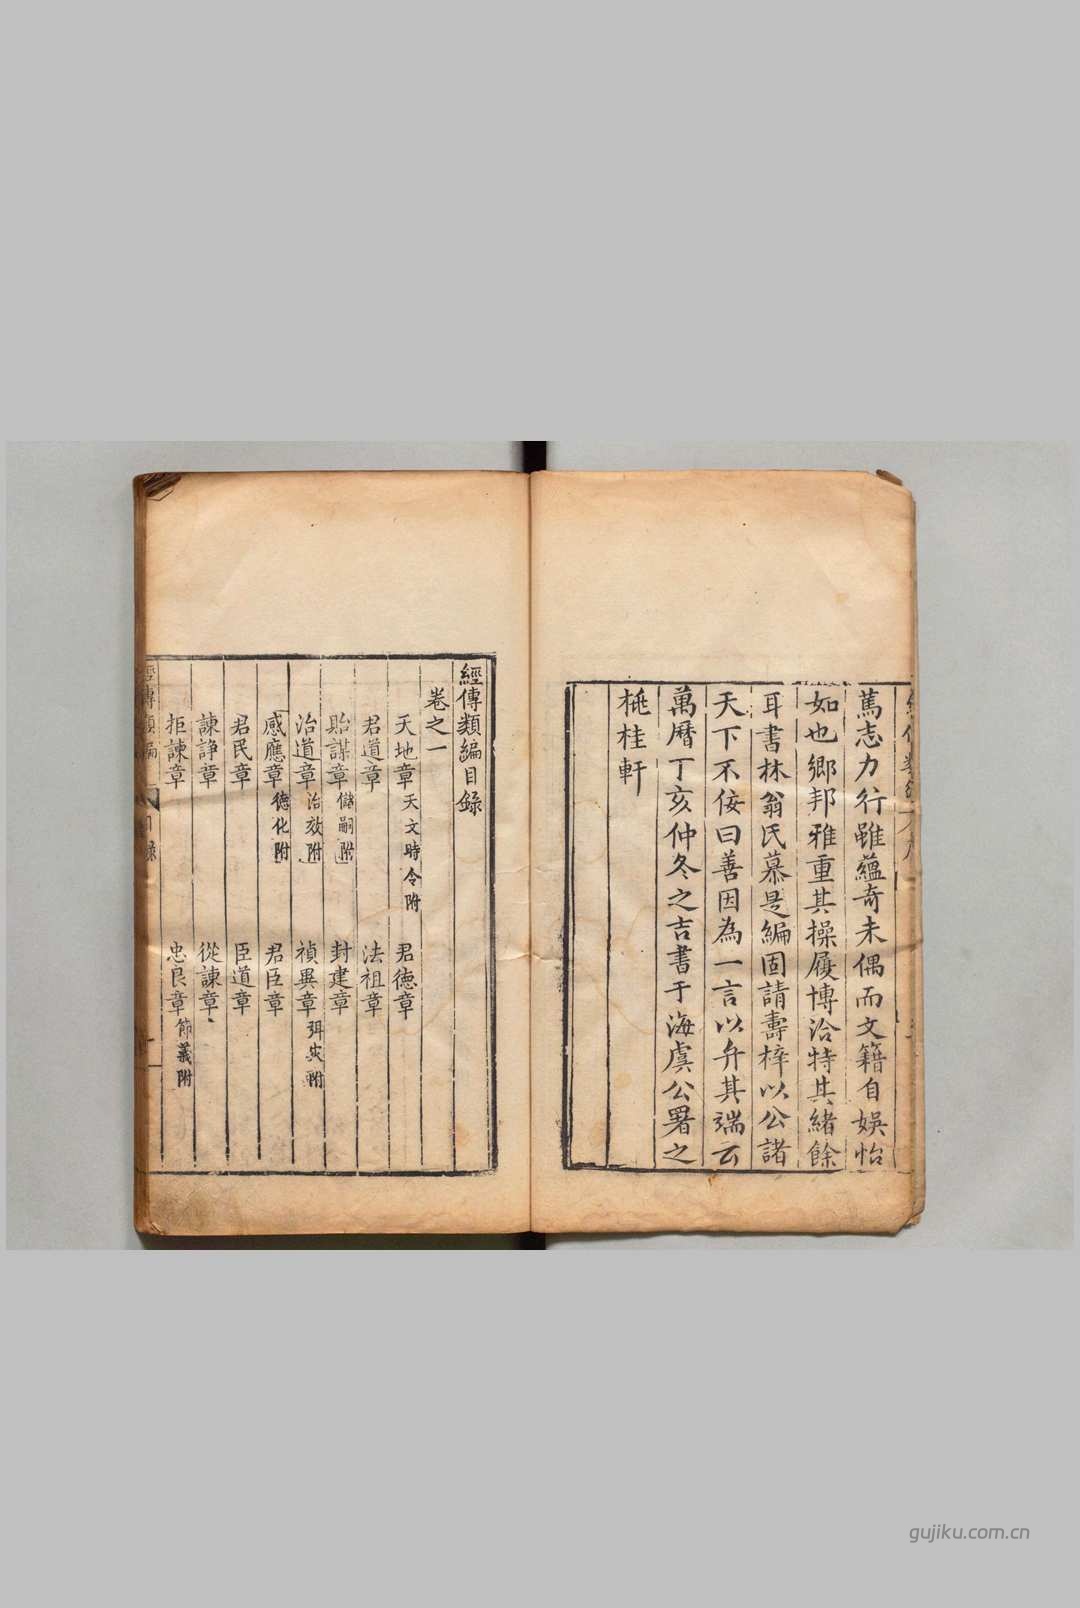 篤志力行雖蘊奇未偶而文籍自娛怡
如也鄉邦雅重其操履博洽特其緒餘
耳書林翁氏慕是編固請壽梓以公諸
天下不佞曰善因為一言以弁其端云
萬曆丁亥仲冬之吉書于海虞公署之
桃桂軒
經傳類編目錄
卷之一
天地章 天文時令附 君德章
君道章 法祖章
貽謀章 儲嗣附 封建章
治道章 治效附 禎異章 弭災附
感應章 德化附 君臣章
君民章 臣道章
諫諍章 從諫章
拒諫章 忠良章 節義附
經傳類編 目錄
gujiku.com.cn